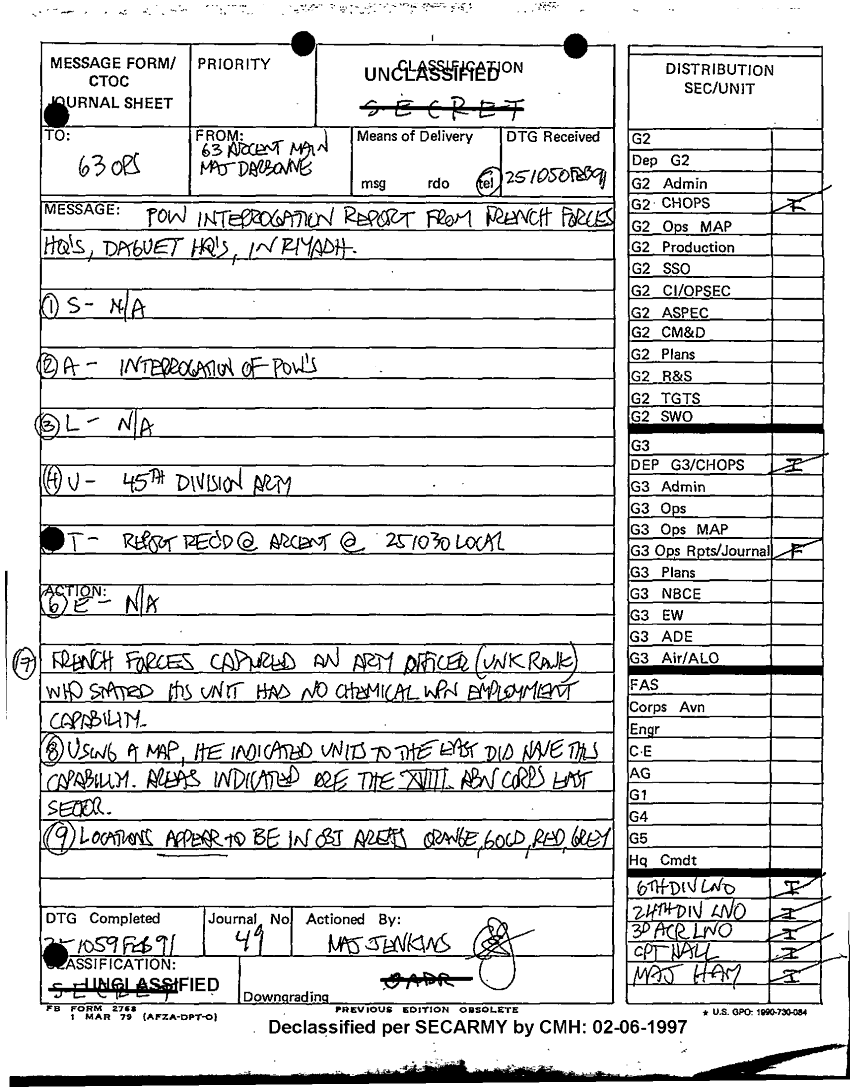 MESSAGE FORM/
CTOC
JOURNAL SHEET
PRIORITY
CLASSIFICATION
UNCLASSIFIED
SECRET
TO:
G3 OPS
FROM:
G3 ARCENT MAIN
MAJ DARBONNE
Means of Delivery
msg rdo tel
DTG Received
251050FEB91
MESSAGE: POW INTERROGATION REPORT FROM FRENCH FORCES
HQ'S, DAGUET HQ'S, IN RIYADH.
① S- N/A
② A- INTERROGATION OF POW'S
③ L- N/A
④ U- 45TH DIVISION ARTY
T- REPORT REC'D @ ARCENT @ 251030 LOCAL
ACTION:
⑥ E- N/A
⑦ FRENCH FORCES CAPTURED AN ARTY OFFICER (UNK RANK)
WHO STATED HIS UNIT HAD NO CHEMICAL WPN EMPLOYMENT
CAPABILITY.
⑧ USING A MAP, HE INDICATED UNITS TO THE EAST DID HAVE THIS
CAPABILITY. AREAS INDICATED ARE THE XVIII ABN CORPS EAST
SECTOR.
⑨ LOCATIONS APPEAR TO BE IN OBJ AREAS ORANGE, GOLD, RED, GREY
DTG Completed
251059FEB91
Journal No
49
Actioned By:
MAJ JENKINS
CLASSIFICATION:
SECRET
UNCLASSIFIED
Downgrading
OADR
FB FORM 2768
1 MAR 79 (AFZA-DPT-O)
PREVIOUS EDITION OBSOLETE
Declassified per SECARMY by CMH: 02-06-1997
DISTRIBUTION
SEC/UNIT
G2
Dep G2
G2 Admin
G2 CHOPS I
G2 Ops MAP
G2 Production
G2 SSO
G2 CI/OPSEC
G2 ASPEC
G2 CM&D
G2 Plans
G2 R&S
G2 TGTS
G2 SWO
G3
DEP G3/CHOPS I
G3 Admin
G3 Ops
G3 Ops MAP
G3 Ops Rpts/Journal F
G3 Plans
G3 NBCE
G3 EW
G3 ADE
G3 Air/ALO
FAS
Corps Avn
Engr
C-E
AG
G1
G4
G5
Hq Cmdt
6TH DIV LNO I
24TH DIV LNO I
3D ACR LNO I
CPT NALL I
MAJ HAM I
★ U.S. GPO: 1990-730-084